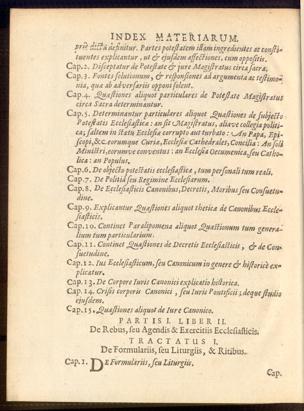 INDEX MATERIARUM.
priè dicta definitur. Partes potestatem illam ingredientes ac consti-
tuentes explicantur, ut & ejusdem affectiones, cum oppositis.
Cap. 2. Disceptatur de Potestate & jure Magistratus circa sacra.
Cap. 3. Fontes solutionum, & responsiones ad argumenta ac testimo-
nia, quæ ab adversariis opponi solent.
Cap. 4. Quæstiones aliquot particulares de Potestate Magistratus
circa Sacra determinantur.
Cap. 5. Determinantur particulares aliquot Quæstiones de subjecto
Potestatis Ecclesiasticæ: an sit Magistratus, aliave collegia politi-
ca, saltem in statu Ecclesiæ corrupto aut turbato: An Papa, Epi-
scopi, &c. eorumque Curia, Ecclesiæ Cathedrales, Concilia: An soli
Ministri, eorumve conventus: an Ecclesia Oecumenica, seu Catho-
lica: an Populus.
Cap. 6. De objecto potestatis ecclesiasticæ, tum personali tum reali.
Cap. 7. De Politiâ seu Regimine Ecclesiarum.
Cap. 8. De Ecclesiasticis Canonibus, Decretis, Moribus seu Consuetu-
dine.
Cap. 9. Explicantur Quæstiones aliquot theticæ de Canonibus Eccle-
siasticis.
Cap. 10. Continet Paralipomena aliquot Quæstionum tum genera-
lium tum particularium.
Cap. 11. Continet Quæstiones de Decretis Ecclesiasticis, & de Con-
suetudine.
Cap. 12. Ius Ecclesiasticum, seu Canonicum in genere & historicè ex-
plicatur.
Cap. 13. De Corpore Iuris Canonici explicatio historica.
Cap. 14. Crisis corporis Canonici, seu Iuris Pontificii; deque studio
ejusdem.
Cap. 15. Quæstiones aliquot de Iure Canonico.
PARTIS I. LIBER II.
De Rebus, seu Agendis & Exercitiis Ecclesiasticis.
TRACTATUS I.
De Formulariis, seu Liturgiis, & Ritibus.
Cap. 1. DE Formulariis, seu Liturgiis.
Cap.